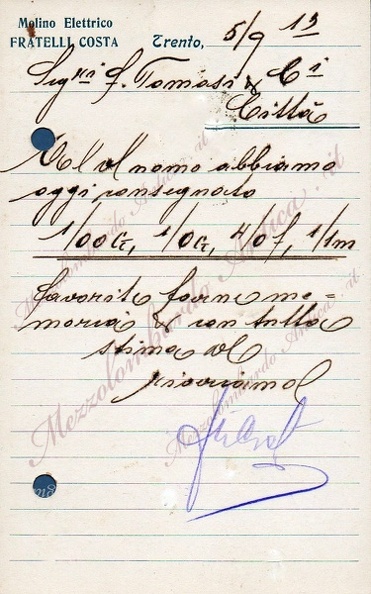 Molino Elettrico
FRATELLI COSTA
Trento, 5/9 13
Sigri f. Tomasi & Ci
Città
Al V/ nomo abbiamo
oggi consegnato
1/00G, 1/0G, 4/0f, 1/1m
favorite farne me=
moria & con tutta
stima Vi
riveriamo
Mezzolombardo Antica.it